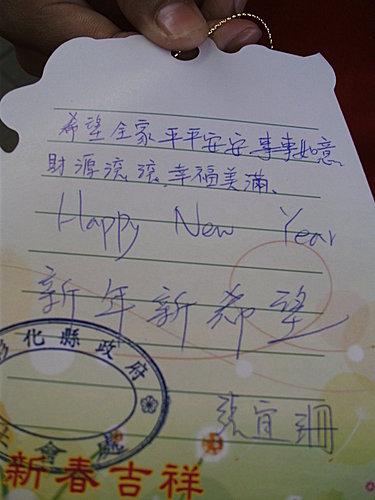 希望全家平平安安、事事如意、
財源滾滾、幸福美滿、
Happy New Year
新年新希望
張宜珊
化縣政府
社會處
新春吉祥